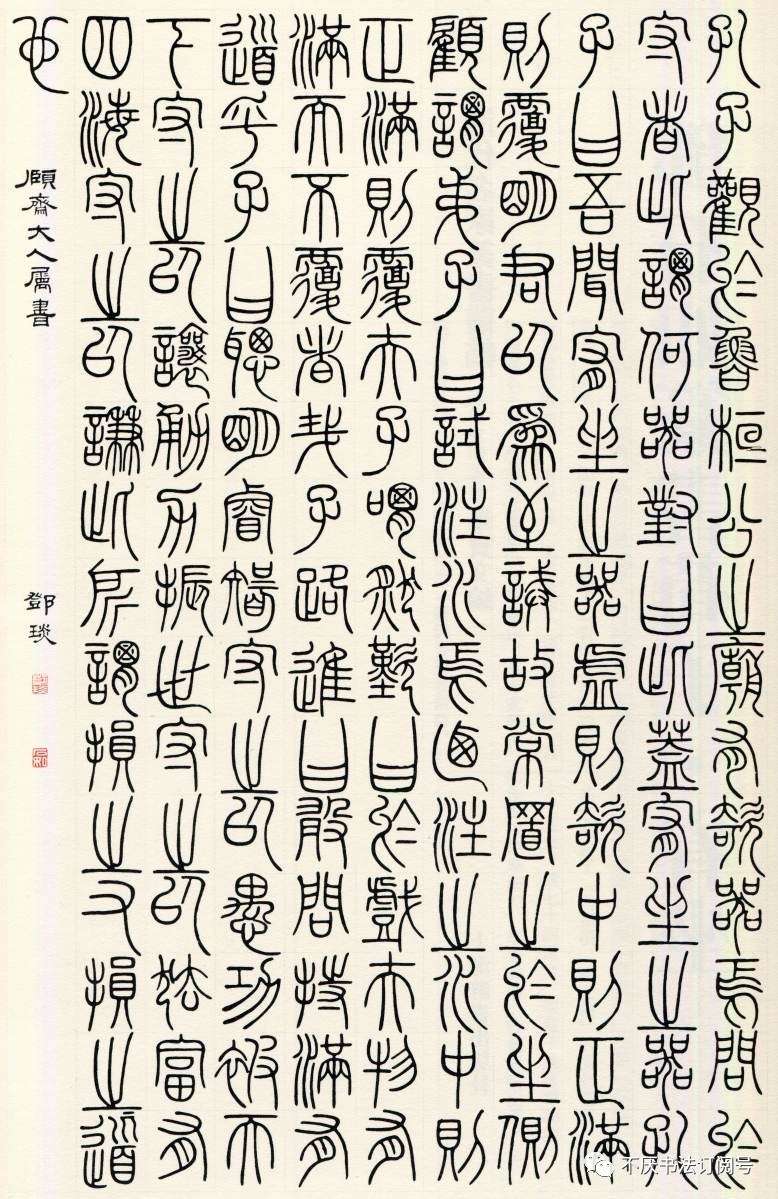 孔子觀於魯桓公之廟有欹器焉問於
守者此謂何器對曰此蓋宥坐之器孔
子曰吾聞宥坐之器虛則欹中則正滿
則覆明君以為至誡故常置之於坐側
顧謂弟子曰試注水焉乃注之水中則
正滿則覆夫子喟然歎曰於戲夫物有
滿而不覆者哉子路進曰敢問持滿有
道乎子曰聰明睿智守之以愚功被天
下守之以讓勇力振世守之以怯富有
四海守之以謙此所謂損之又損之道
也
頤齋大人屬書
鄧琰
不厌书法订阅号